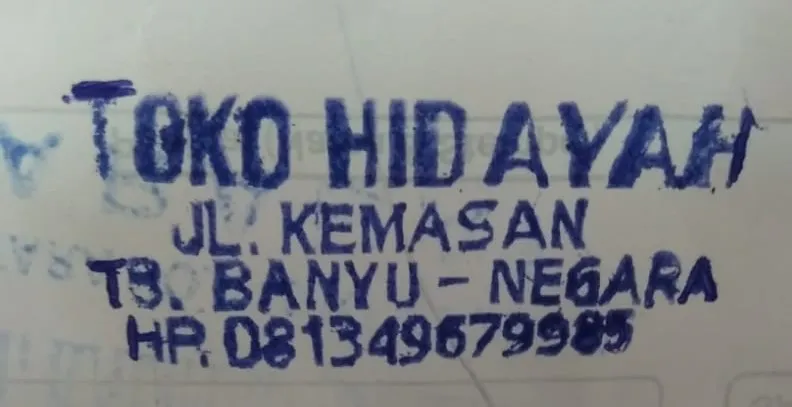 TOKO HIDAYAH
JL. KEMASAN
TB. BANYU - NEGARA
HP. 081349679985